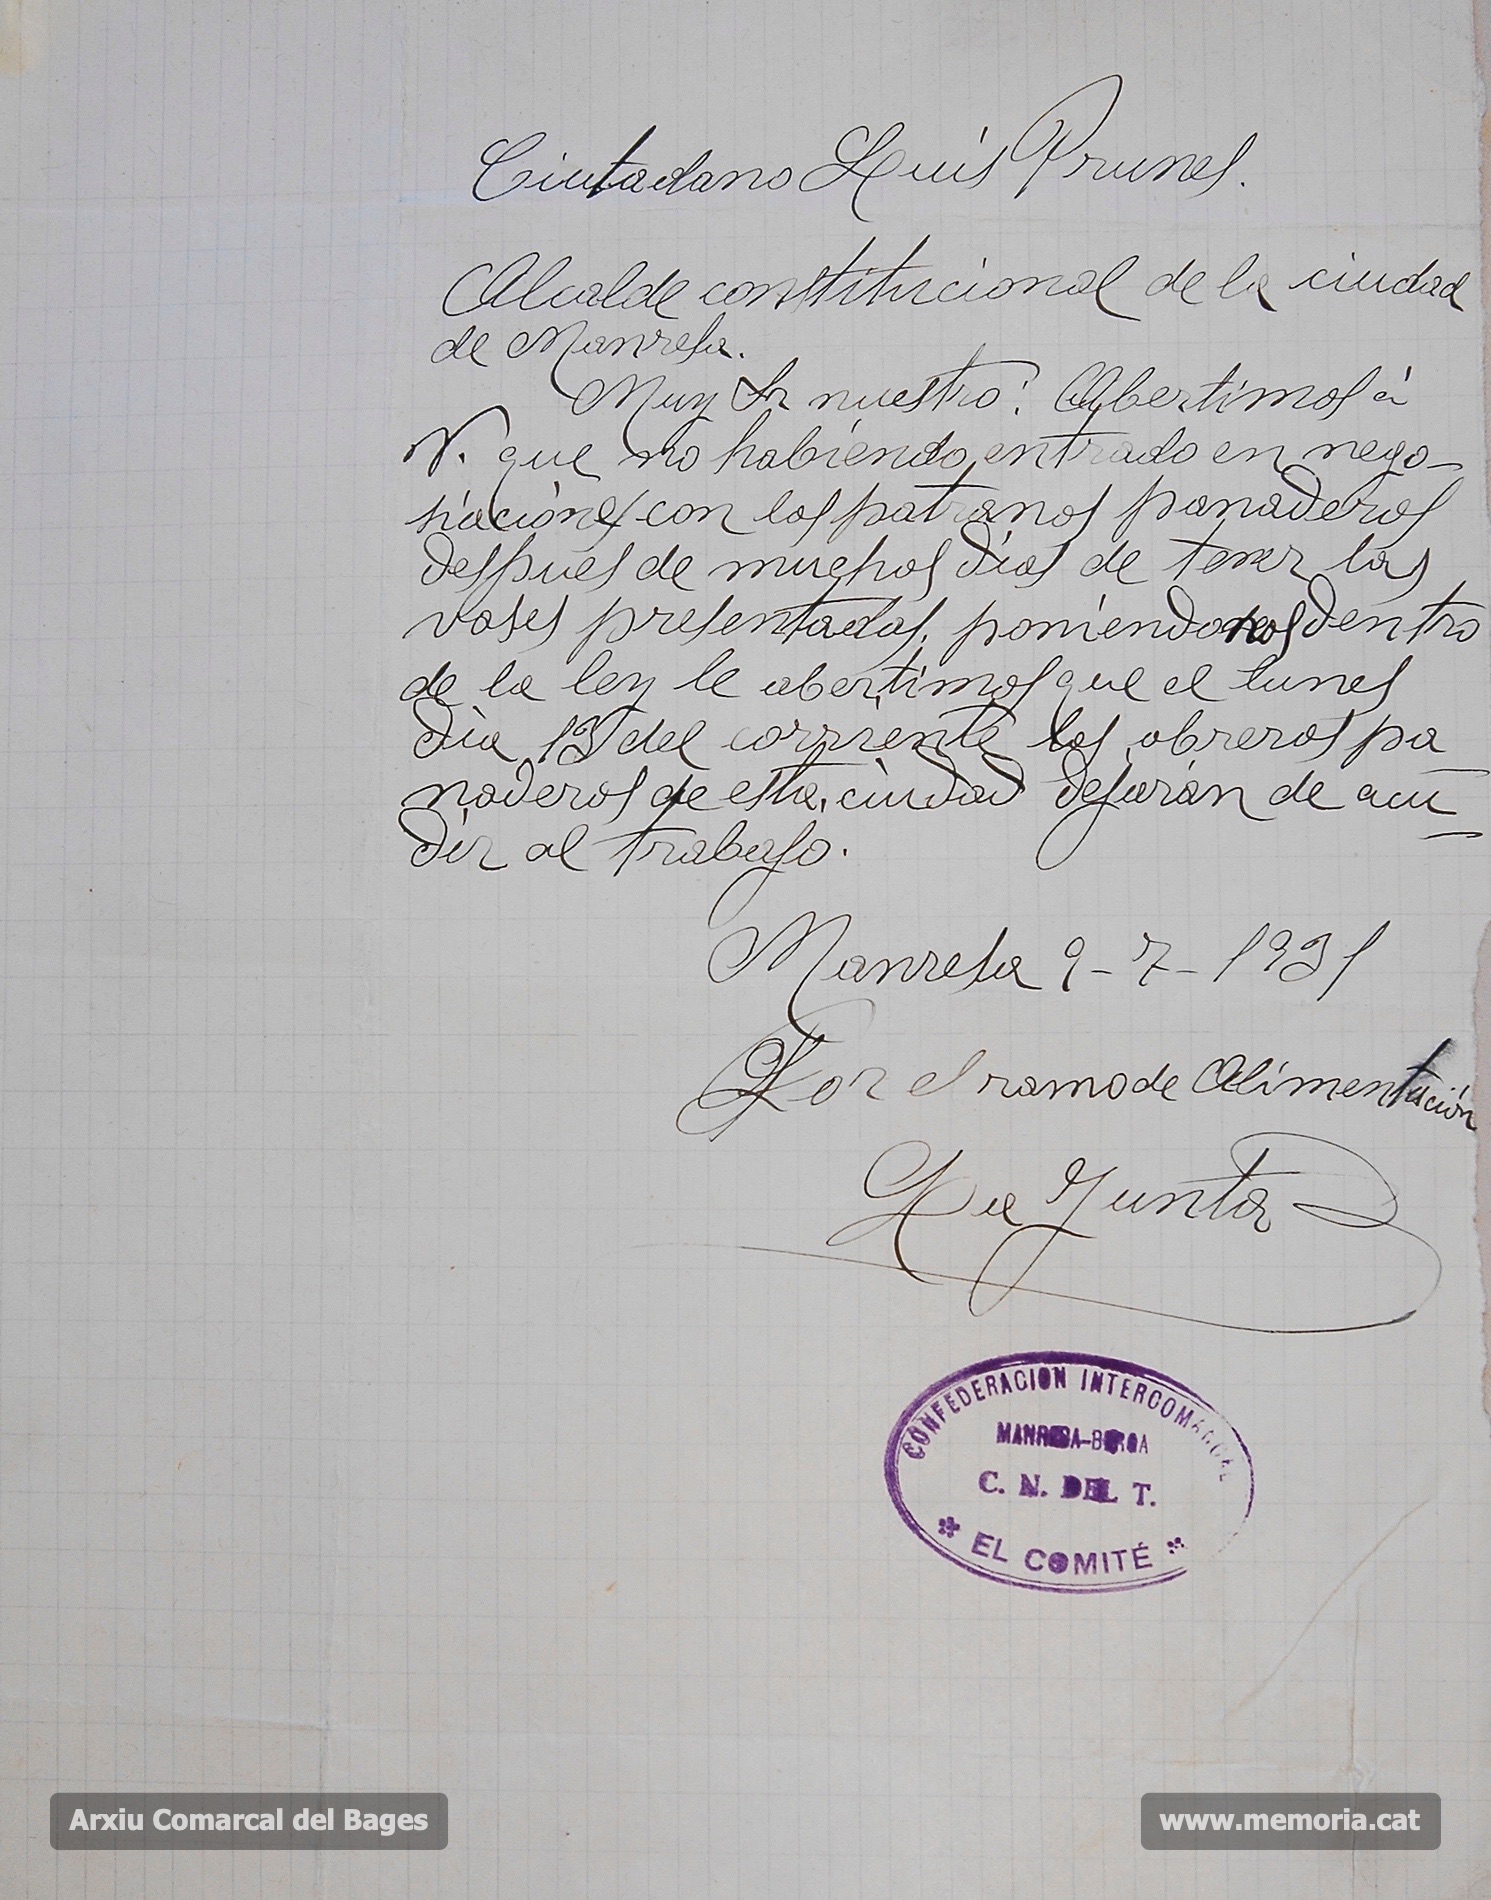 Ciutadano Luis Prunes.
Alcalde constitucional de la ciudad
de Manresa.
Muy Sr nuestro: Abertimos á
V. que no habiendo entrado en nego-
siaciónes con los patronos panaderos
despues de muchos días de tener las
vases presentadas, poniendonos dentro
de la ley le abertimos que el lunes
día 13 del corriente los obreros pa
naderos de esta ciudad dejarán de acu-
dir al trabajo.
Manresa 9-7-1931
Por el ramo de Alimentación
La Junta
CONFEDERACION INTERCOMARCAL
MANRESA-BERGA
C. N. DEL T.
* EL COMITÉ *
Arxiu Comarcal del Bages
www.memoria.cat